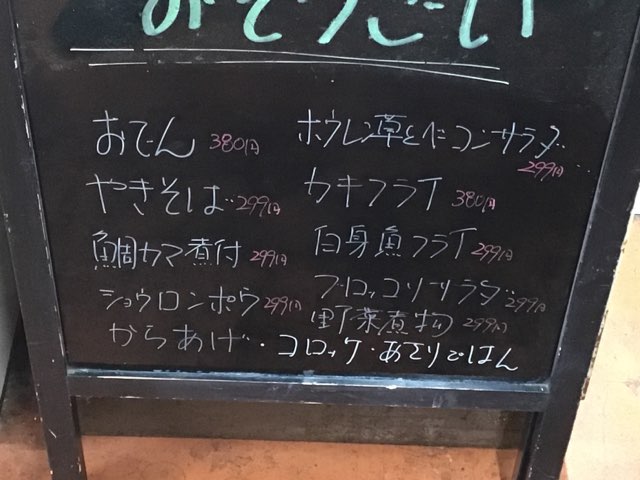 おそうざい
おでん 380円
やきそば 299円
鯛カマ煮付 299円
ショウロンポウ 299円
ホウレン草とベーコンサラダ
299円
カキフライ 380円
白身魚フライ 299円
ブロッコリサラダ 299円
野菜煮物 299円
からあげ・コロッケ・あさりごはん